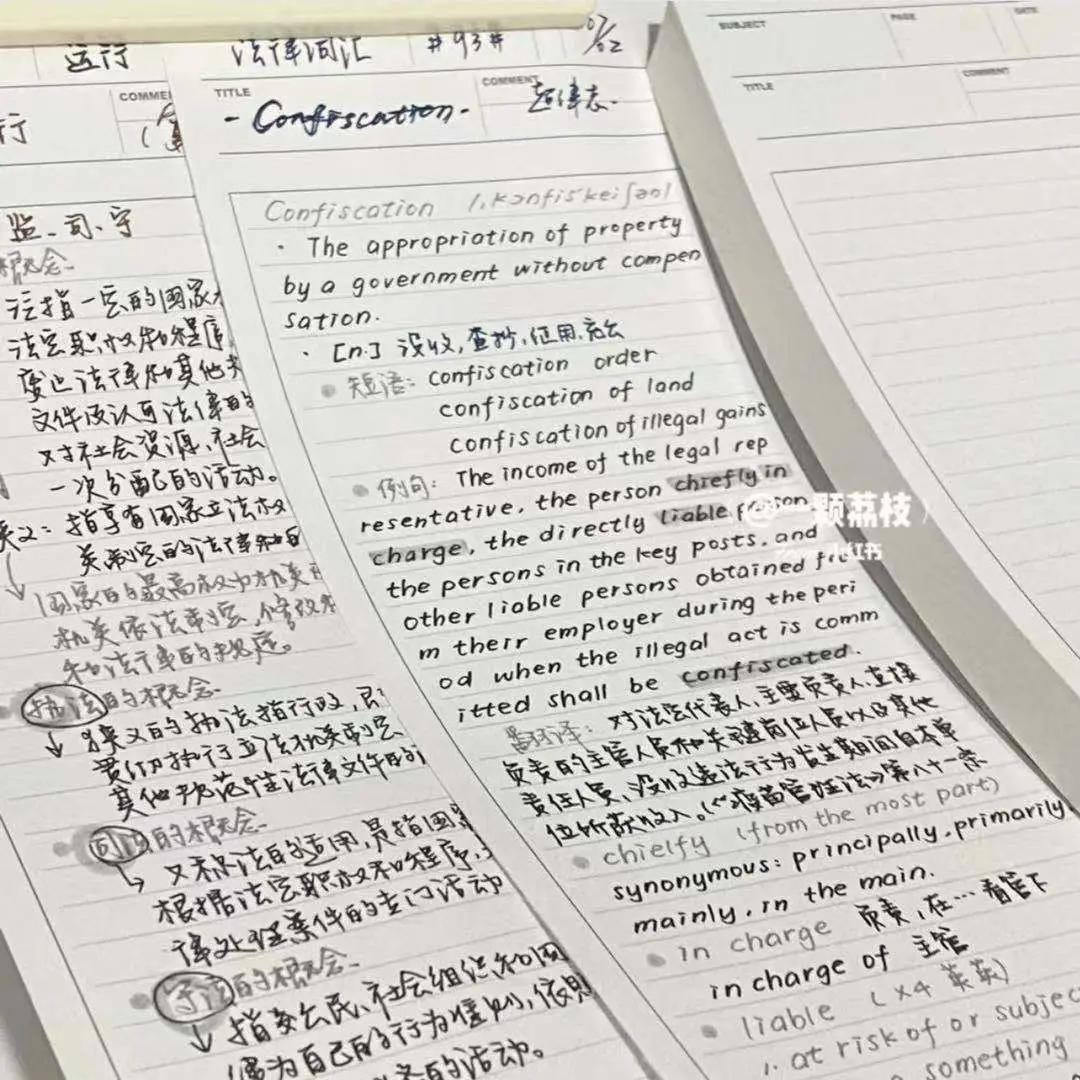 运行
法律词汇
#93#
07/02
行
COMME
TITLE
- Confiscation -
COMMENT
SUBJECT
PAGE
DATE
TITLE
COMMENT
监、司、守
概念
泛指一定的国家
法定职权和程序
废止法律和其他
文件及认可法律的
对社会资源、社会
一次分配的活动。
义：指享有国家立法权
关制定的法律和
国家的最高权力机关
机关依法制定、修改
和法律的
执法的概念
狭义的执法指行政,
贯彻执行立法机关制定
其他规范性法律文件的
司法的概念
又称法的适用,是指国家
根据法定职权和程序,
律处理案件的专门活动
守法的概念
指 公民、社会组织和国
为自己的行为准则,依照
的活动。
Confiscation /,kɔnfis'keiʃən/
· The appropriation of property
by a government without compen
sation.
· [n.] 没收,查抄,征用,充公
短语: confiscation order
confiscation of land
confiscation of illegal gains
例句: The income of the legal rep
resentative, the person chiefly in
charge, the directly liable person
the persons in the key posts, and
other liable persons obtained fro
m their employer during the peri
od when the illegal act is comm
itted shall be confiscated.
翻译: 对法定代表人,主要负责人,直接
负责的主管人员和关键岗位人员以及其他
责任人员,没收违法行为发生期间自本单
位所获收入。(《疫苗管理法》第八十一条
chielfy (from the most part)
synonymous: principally, primarily,
mainly, in the main.
in charge 负责,在…看管下
in charge of 主管
liable (x4 英英)
1. at risk of or subjec
something
@一颗荔枝
小红书